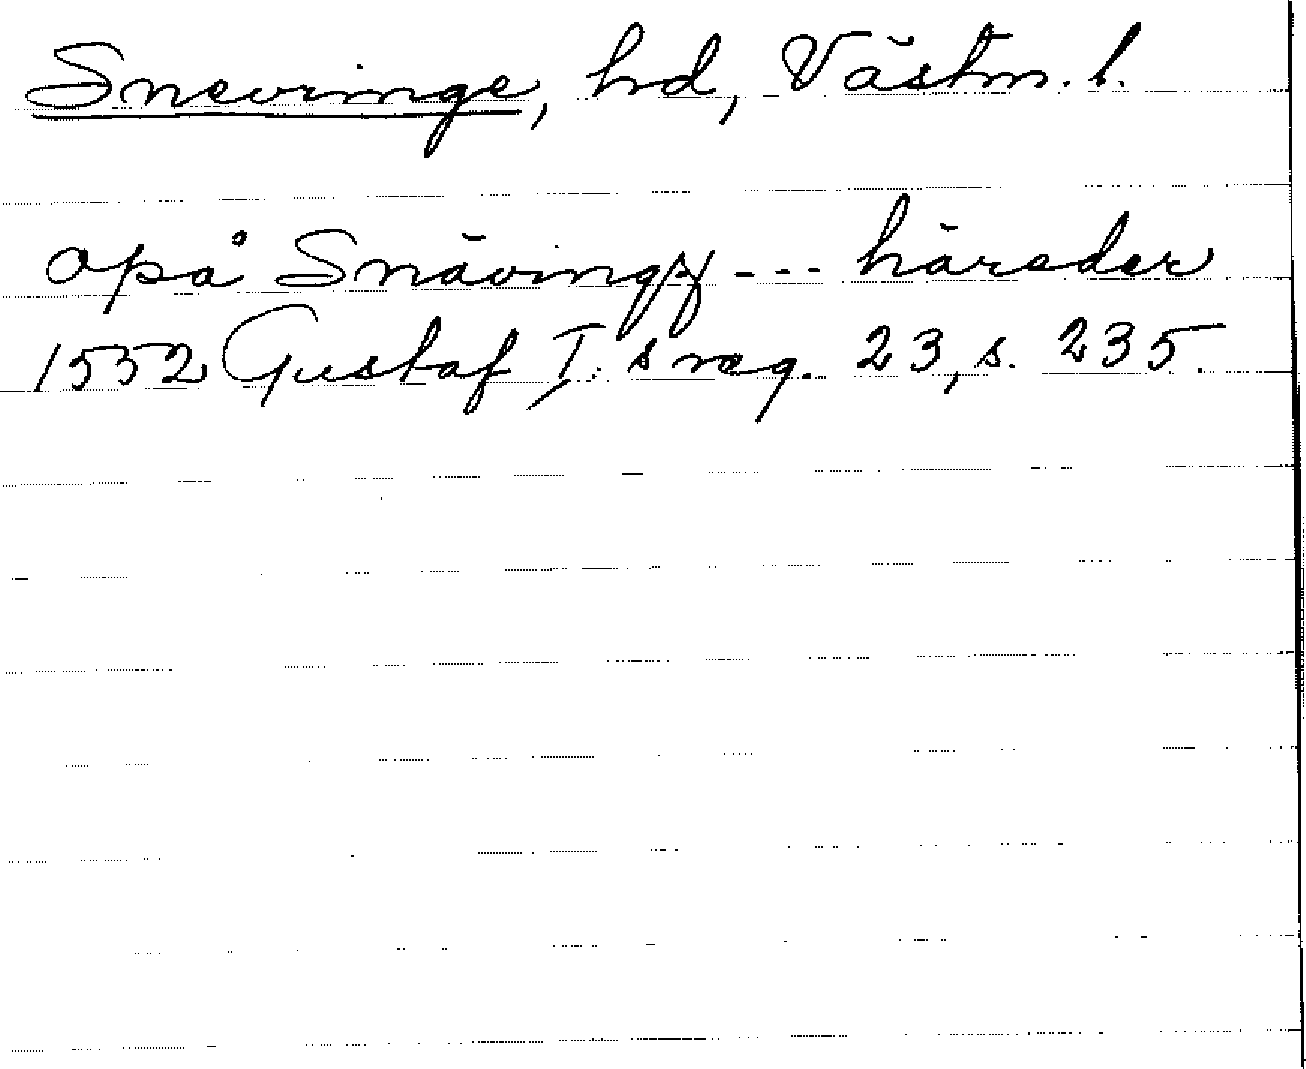 Snevringe, hd, Västm. l.
opå Snävingx --- häreder
1552 Gustaf I:s reg. 23, s. 235.